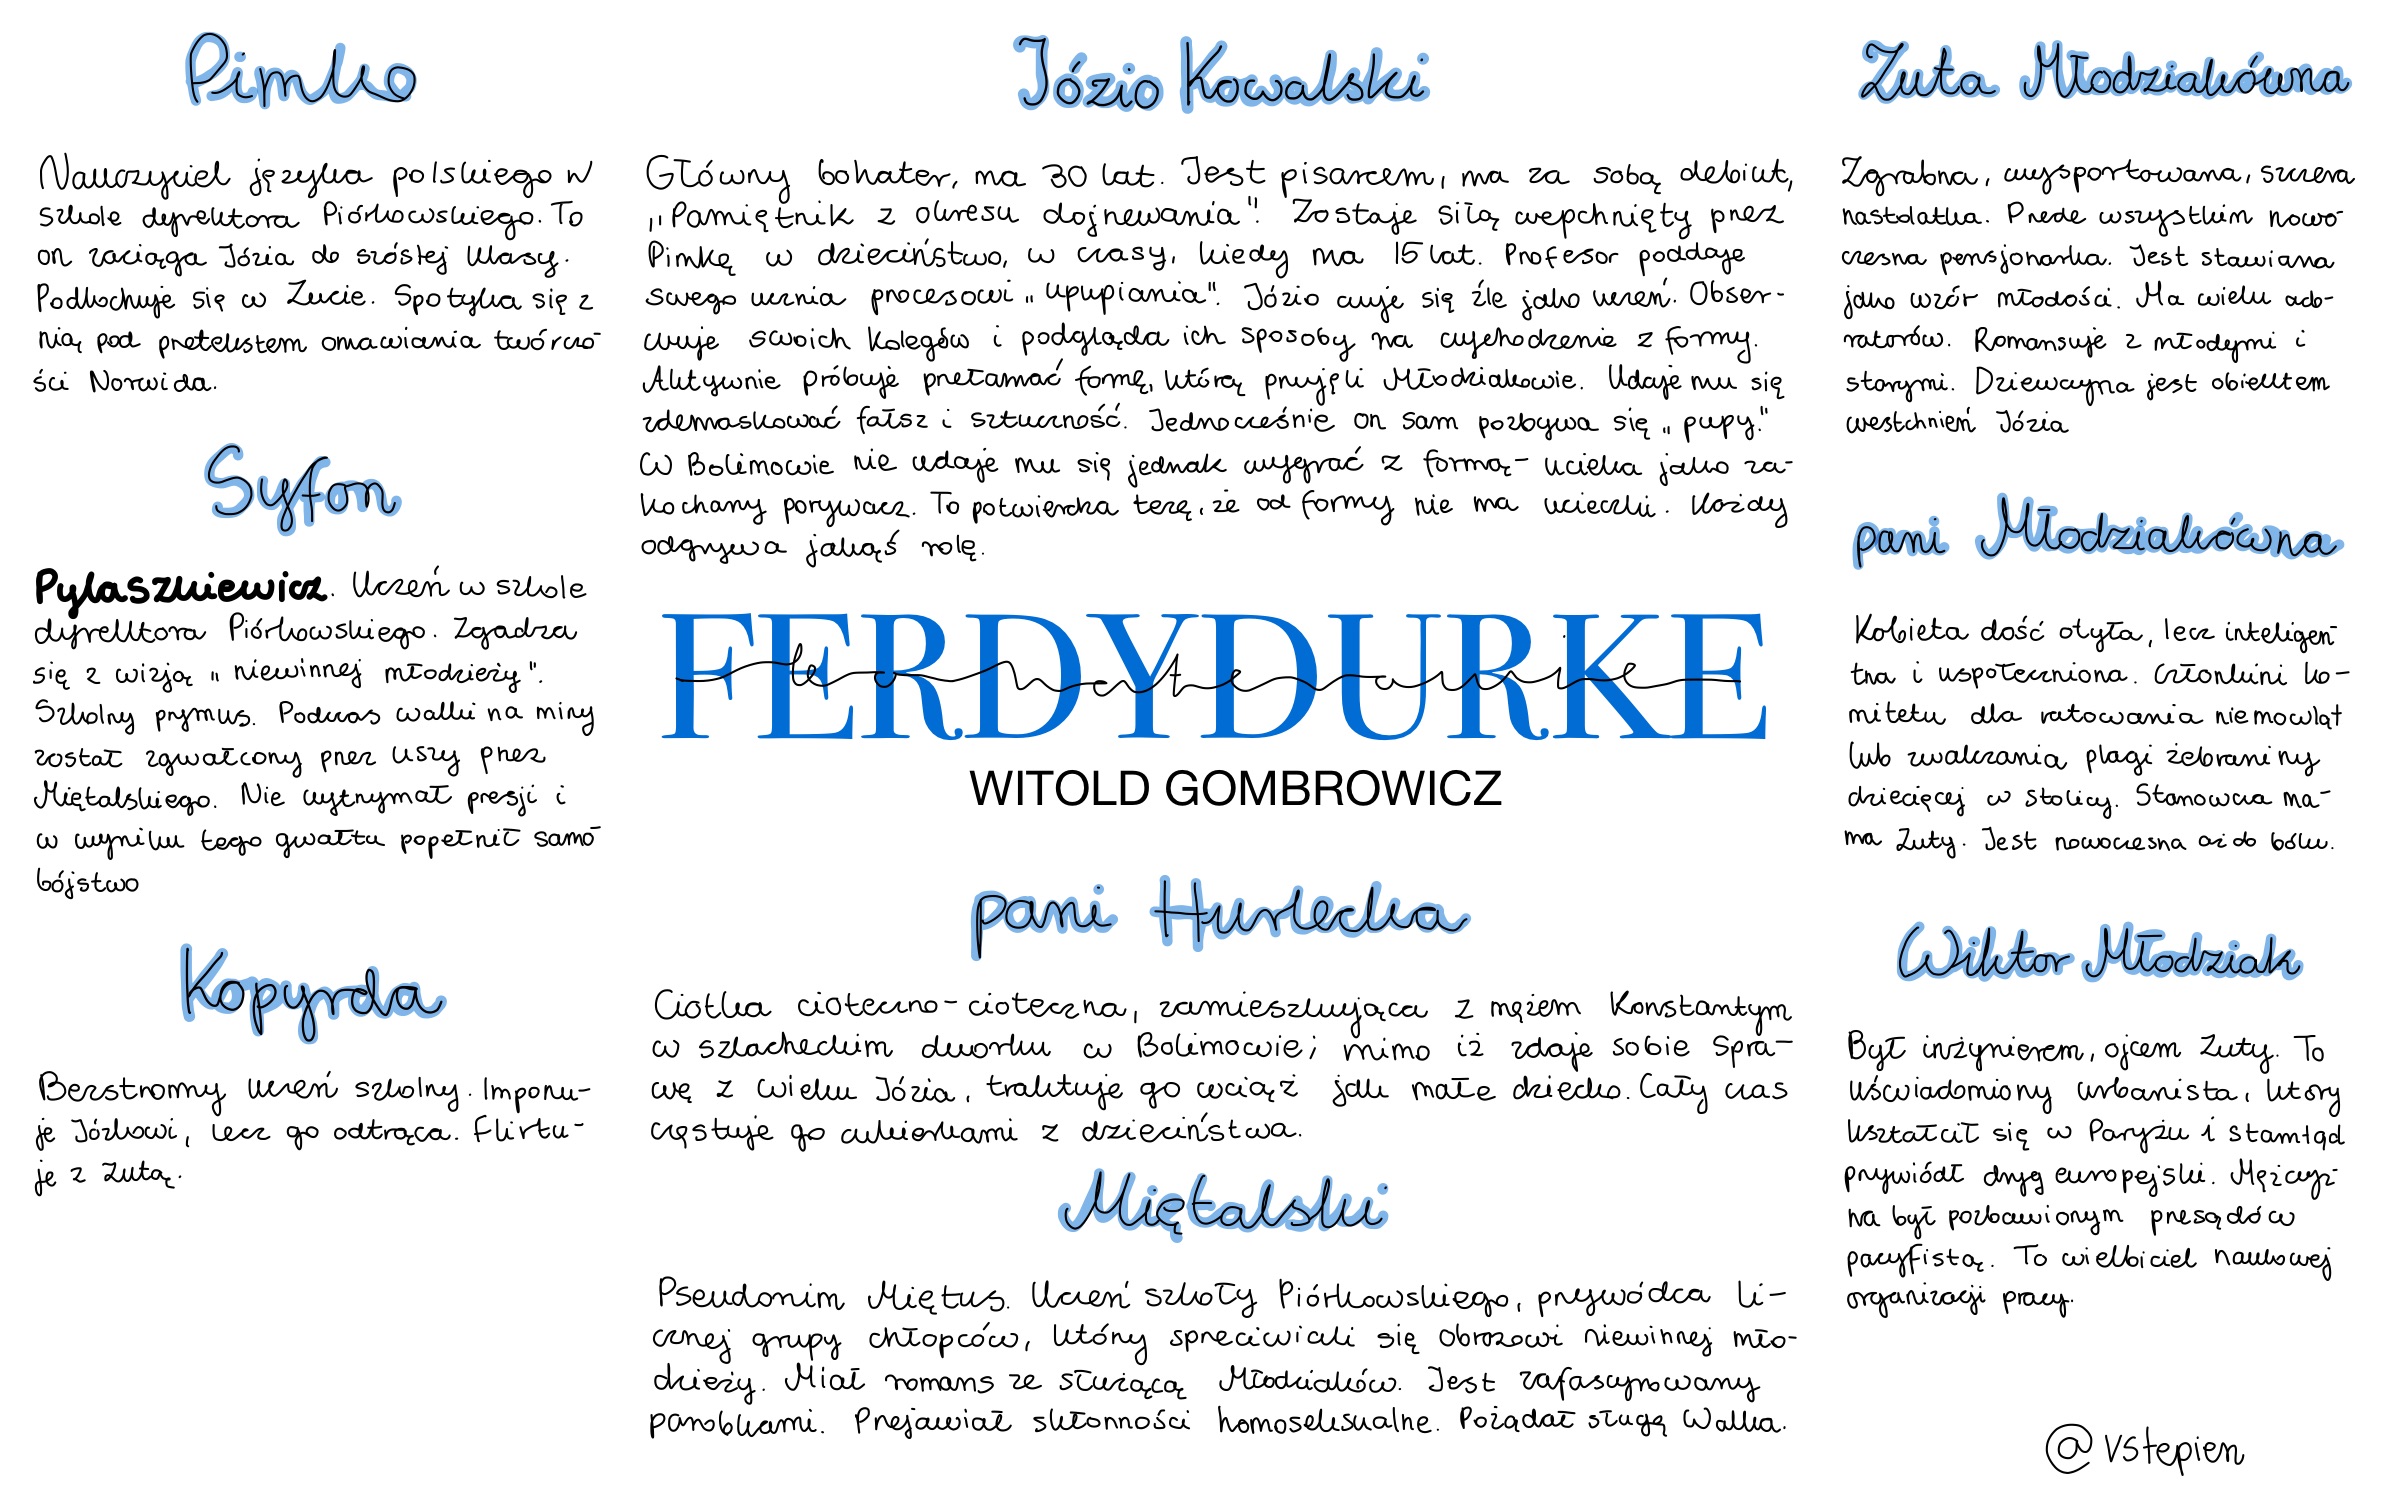 Pimko
Nauczyciel języka polskiego w
szkole dyrektora Piórkowskiego. To
on zaciąga Józia do szóstej klasy.
Podkochuje się w Zucie. Spotyka się z
nią pod pretekstem omawiania twórczo-
ści Norwida.
Syfon
Pylaszkiewicz. Uczeń w szkole
dyrektora Piórkowskiego. Zgadza
się z wizją „niewinnej młodzieży".
Szkolny prymus. Podczas walki na miny
został zgwałcony przez uszy przez
Miętalskiego. Nie wytrzymał presji i
w wyniku tego gwałtu popełnił samo-
bójstwo
Kopyrda
Bezstronny uczeń szkolny. Imponu-
je Józkowi, lecz go odtrąca. Flirtu-
je z Zutą.
Józio Kowalski
Główny bohater, ma 30 lat. Jest pisarzem, ma za sobą debiut,
„Pamiętnik z okresu dojrzewania". Zostaje siłą wepchnięty przez
Pimkę w dzieciństwo, w czasy, kiedy ma 15 lat. Profesor poddaje
swego ucznia procesowi „upupiania". Józio czuje się źle jako uczeń. Obser-
wuje swoich kolegów i podgląda ich sposoby na wychodzenie z formy.
Aktywnie próbuje przełamać formę, którą przyjęli Młodziakowie. Udaje mu się
zdemaskować fałsz i sztuczność. Jednocześnie on sam pozbywa się „pupy."
W Bolimowie nie udaje mu się jednak wygrać z formą - ucieka jako za-
kochany porywacz. To potwierdza tezę, że od formy nie ma ucieczki. Każdy
odgrywa jakąś rolę.
FERDYDURKE
lewaterance
WITOLD GOMBROWICZ
pani Hurlecka
Ciotka cioteczno-cioteczna, zamieszkująca z mężem Konstantym
w szlacheckim dworku w Bolimowie; mimo iż zdaje sobie spra-
wę z wieku Józia, traktuje go wciąż jak małe dziecko. Cały czas
częstuje go cukierkami z dzieciństwa.
Miętalski
Pseudonim Miętus. Uczeń szkoły Piórkowskiego, przywódca li-
cznej grupy chłopców, którzy sprzeciwiali się obrazowi niewinnej mło-
dzieży. Miał romans ze służącą Młodziaków. Jest zafascynowany
parobkami. Przejawiał skłonności homoseksualne. Pożądał sługę Walka.
Zuta Młodziakówna
Zgrabna, wysportowana, szczera
nastolatka. Przede wszystkim nowo-
czesna pensjonarka. Jest stawiana
jako wzór młodości. Ma wielu ado-
ratorów. Romansuje z młodymi i
starymi. Dziewczyna jest obiektem
westchnień Józia
pani Młodziakówna
Kobieta dość otyła, lecz inteligen-
tna i uspołeczniona. Członkini ko-
mitetu dla ratowania niemowląt
lub zwalczania plagi żebraniny
dziecięcej w stolicy. Stanowcza ma-
ma Zuty. Jest nowoczesna aż do bólu.
Wiktor Młodziak
Był inżynierem, ojcem Zuty. To
uświadomiony urbanista, który
kształcił się w Paryżu i stamtąd
przywiódł dryg europejski. Mężczyz-
na był pozbawionym przesądów
pacyfistą. To wielbiciel naukowej
organizacji pracy.
@vstepien